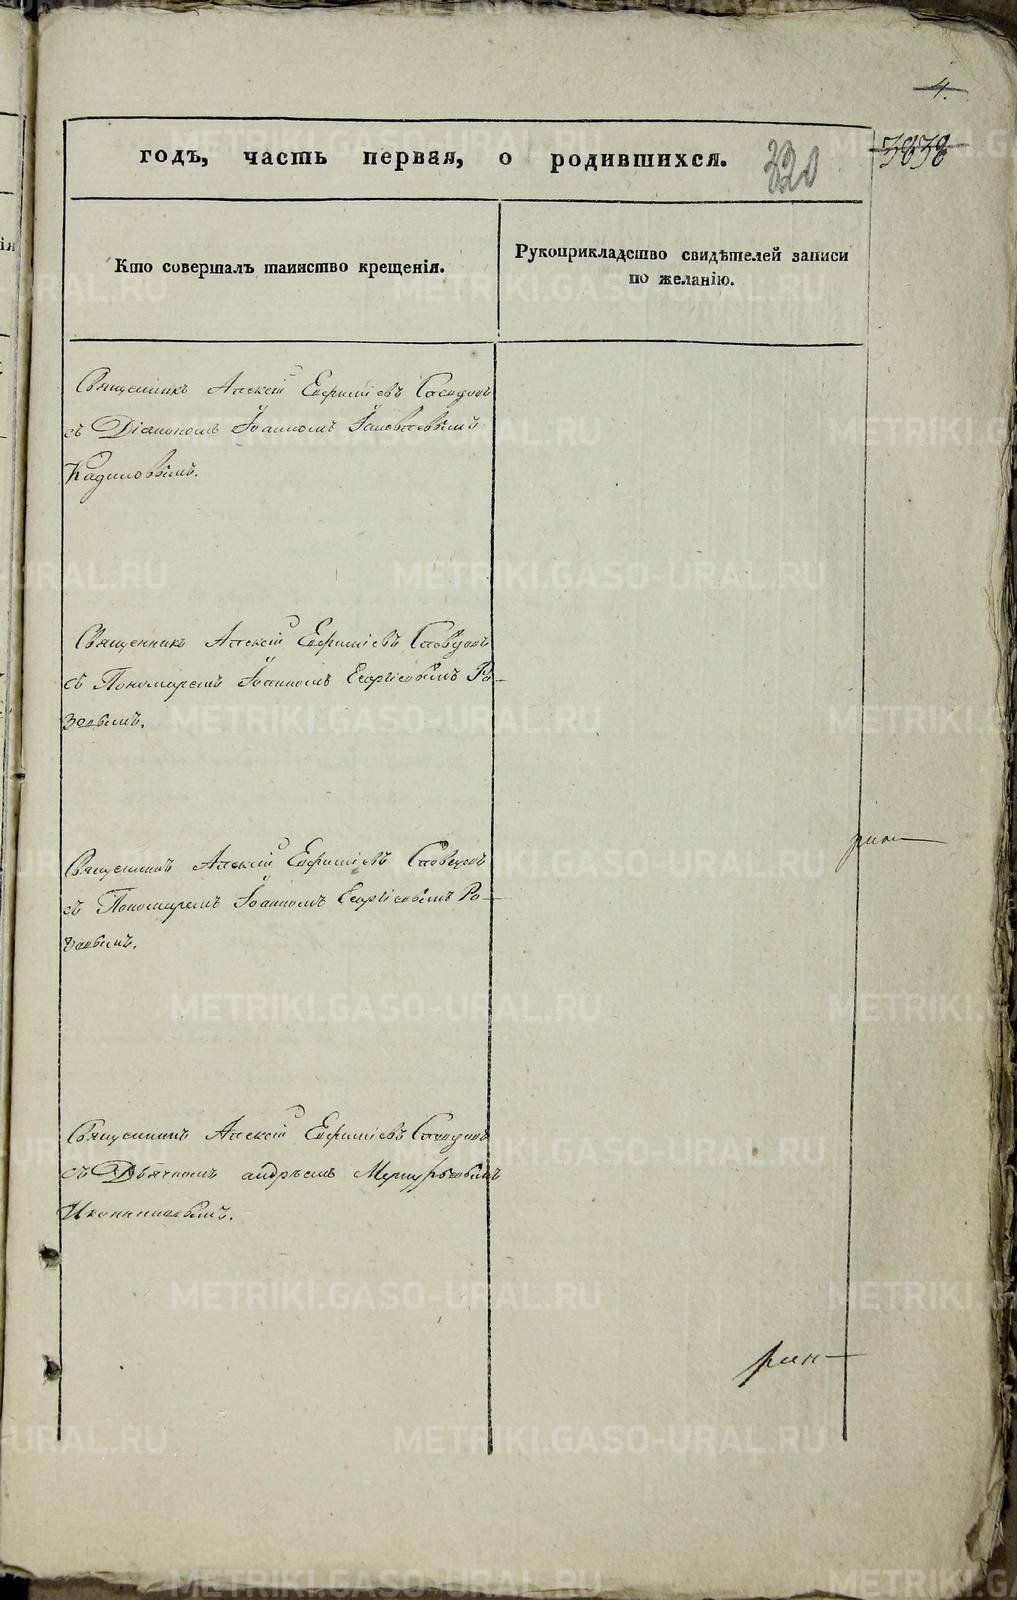 4.
годъ, часть первая, о родившихся.
320
3838
Кто совершалъ таинство крещенія.
Рукоприкладство свидѣтелей записи
по желанію.
Священникъ Алексій Евфиміевъ
съ Діакономъ Іоанномъ Іаковлевымъ
Кадиловымъ.
Священникъ Алексій Евфиміевъ
съ Пономаремъ Іоанномъ Георгіевымъ Ро-
зовымъ.
Священникъ Алексій Евфиміевъ
съ Пономаремъ Іоанномъ Георгіевымъ Ро-
зовымъ.
Священникъ Алексій Евфиміевъ
съ Дьячкомъ андрѣемъ Меркурьевымъ
Иконниковымъ.
METRIKI.GASO-URAL.RU